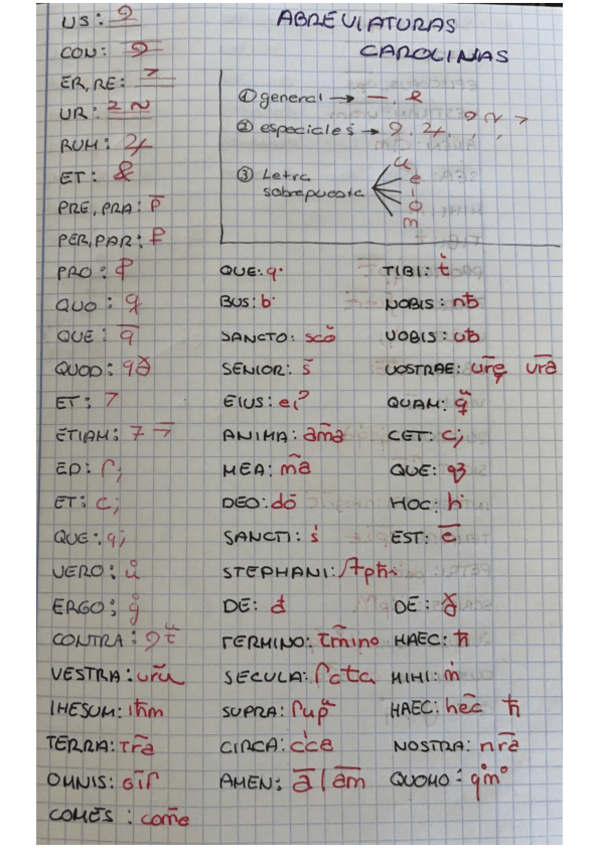 ABREVIATURAS
CAROLINAS
US: 9
CON: 9
ER, RE: 7
UR: 2 ~
RUM: 4
ET: &
PRE, PRA: p̄
PER, PAR: ꝑ
PRO: ꝓ
QUO: q
QUE: q̄
QUOD: qð
ET: 7
ETIAM: 7 7̄
ED: ſ;
ET: c;
QUE: q;
VERO: ů
ERGO: g̊
CONTRA: 9t̄
VESTRA: ur̄a
IHESUM: ihm̄
TERRA: tr̄a
OMNIS: oı̄ſ
COMES: com̄e
① general → —, &
② especiales → 9, 4, 9 ~ 7
③ Letra
sobrepuesta
u
e
i
o
m
QUE: q·
BUS: b·
SANCTO: scō
SENIOR: s̄
EIUS: ei?
ANIMA: am̄a
MEA: m̄a
DEO: dō
SANCTI: ṡ
STEPHANI:
DE: đ
TERMINO: tm̄ino
SECULA: ſcta
SUPRA: ſup
CIRCA: cca
AMEN: ā | ām
TIBI: t
NOBIS: nƀ
VOBIS: uƀ
VOSTRAE: ur̄ę ur̄a
QUAM: q
CET: c;
QUE: q3
HOC: h·
EST: ē
DE:
HAEC: ħ
MIHI: ṁ
HAEC: hec̄ ħ
NOSTRA: nr̄a
QUOMO: q°m°